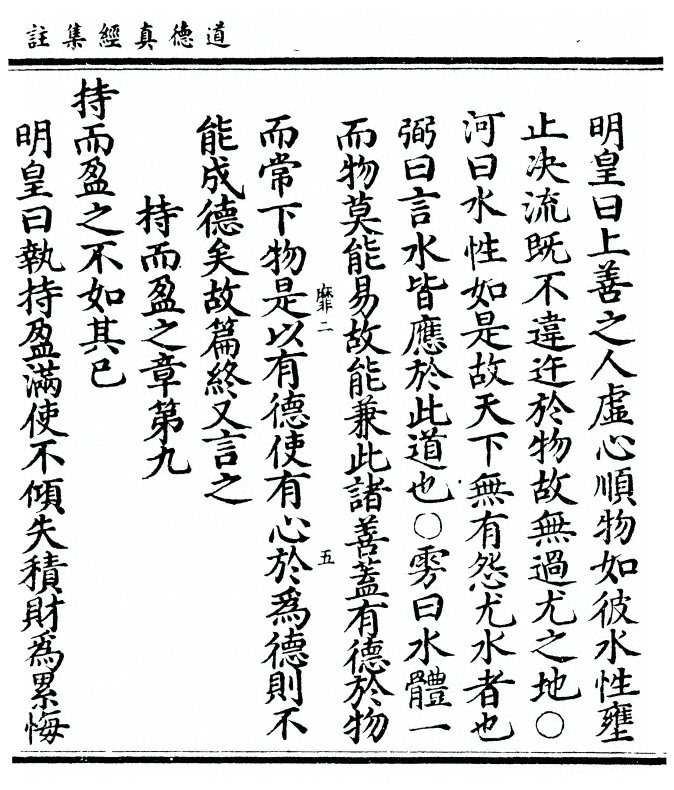 道德真經集註
明皇曰上善之人虛心順物如彼水性壅
止决流既不違迕於物故無過尤之地○
河曰水性如是故天下無有怨尤水者也
弼曰言水皆應於此道也○雱曰水體一
而物莫能易故能兼此諸善蓋有德於物
靡二
五
而常下物是以有德使有心於爲德則不
能成德矣故篇終又言之
持而盈之章第九
持而盈之不如其已
明皇曰執持盈滿使不傾失積財爲累悔